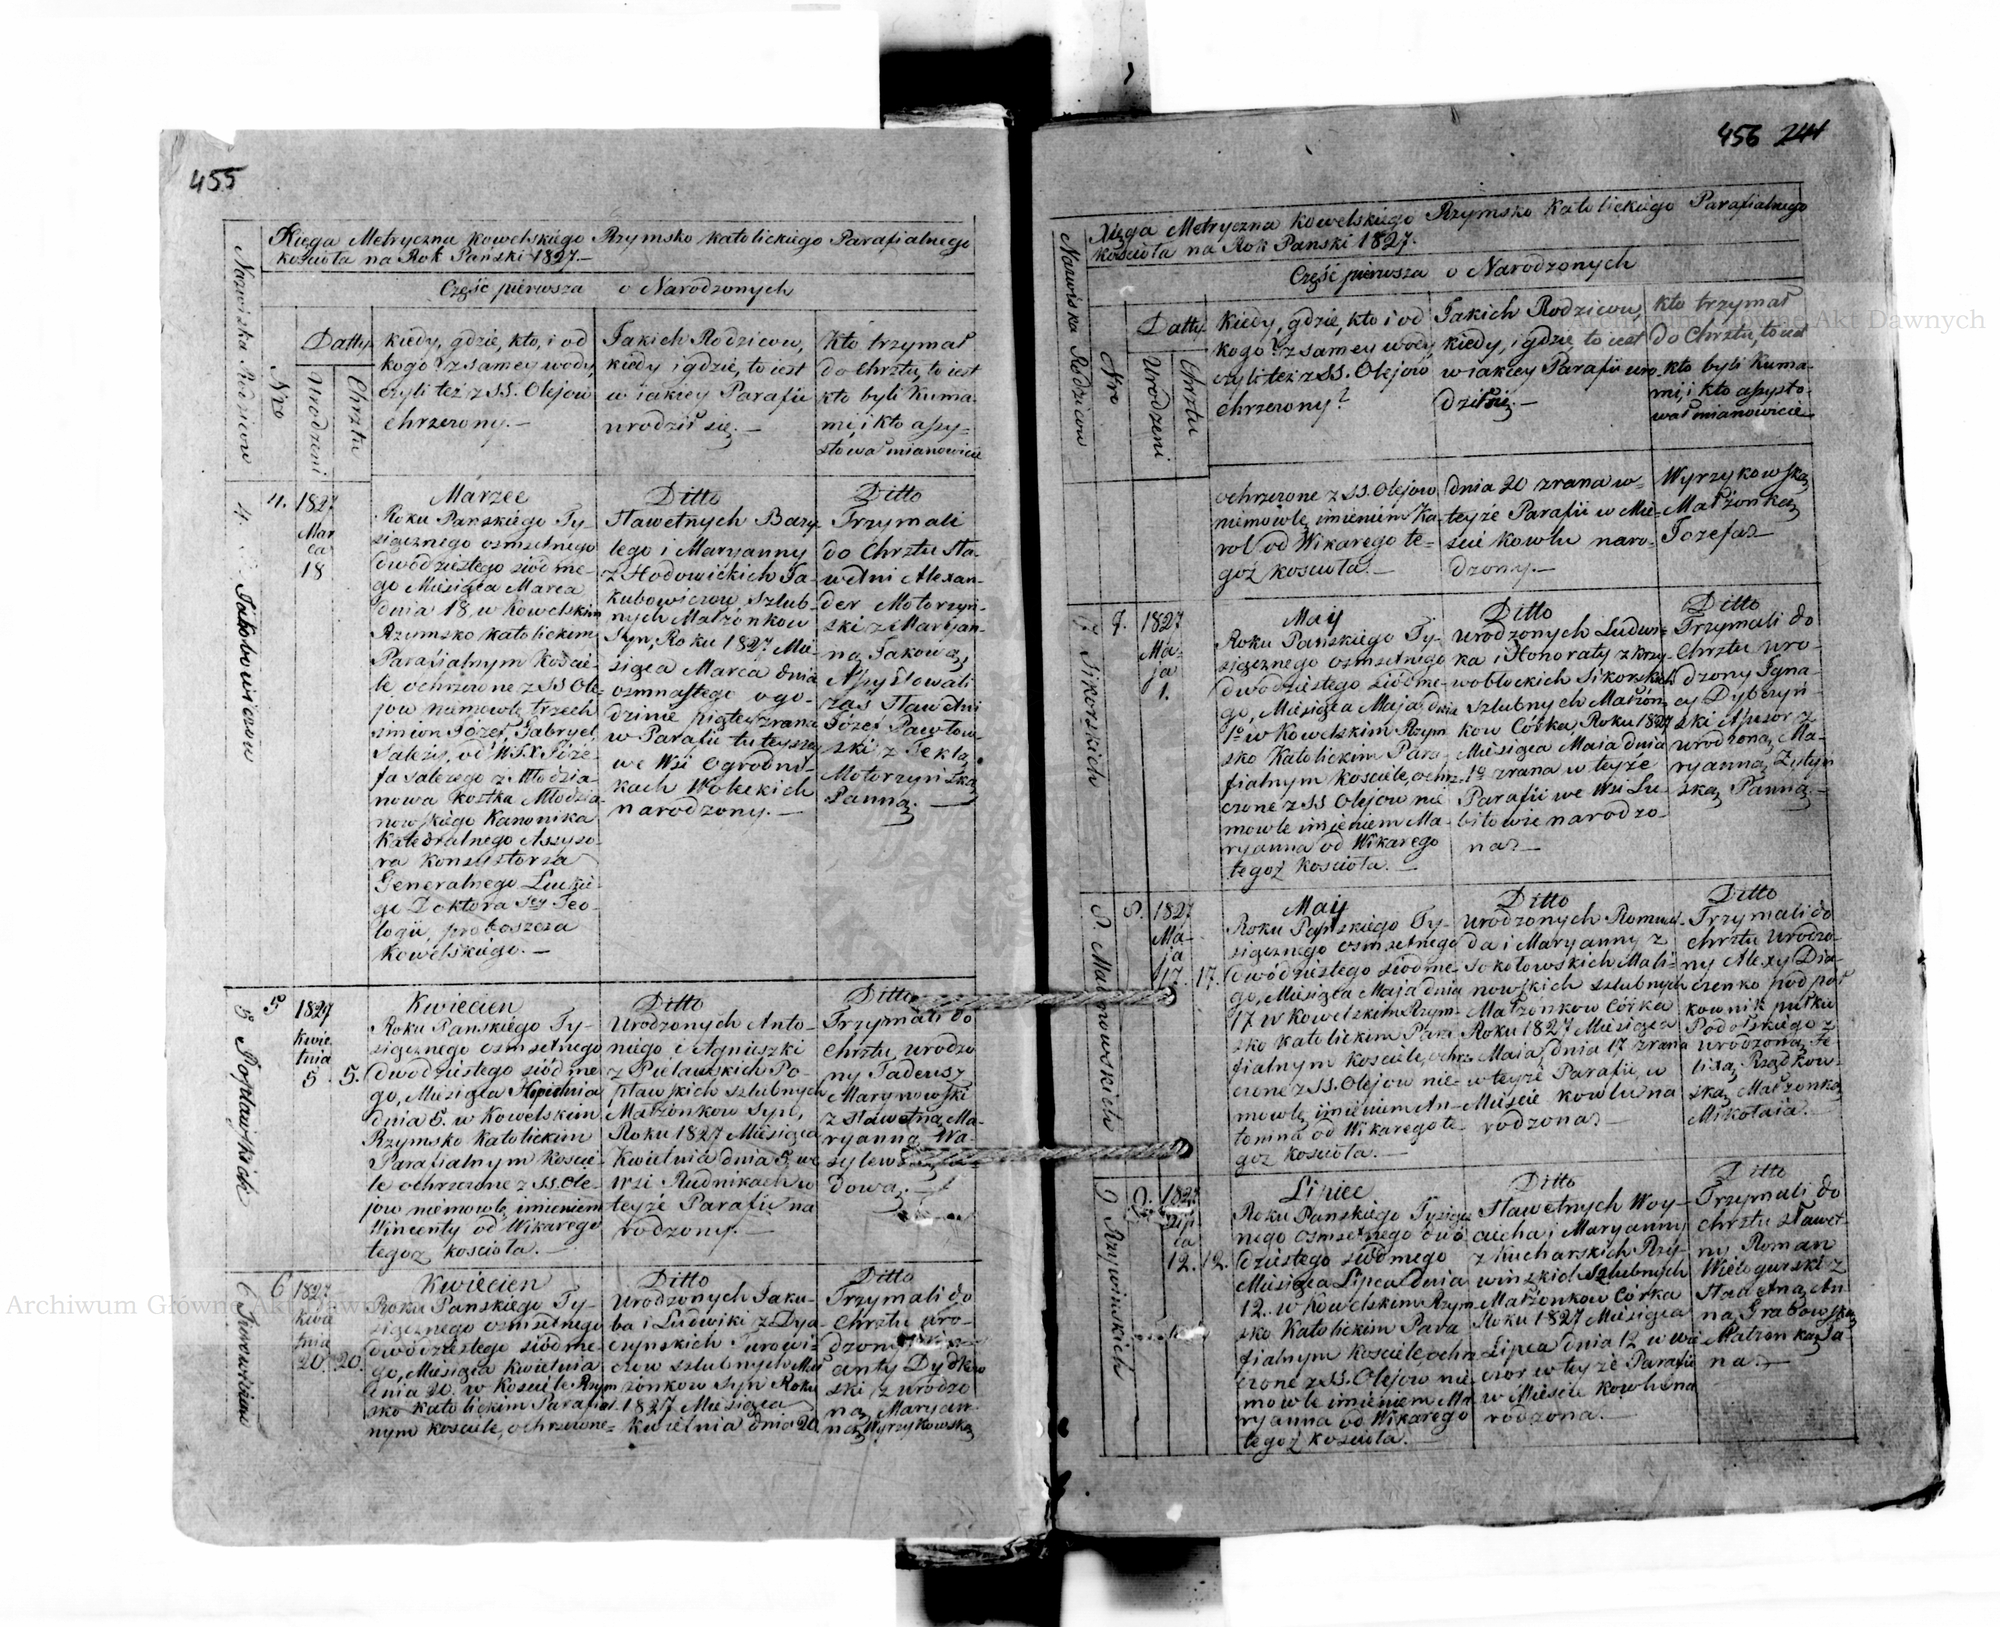 455
Xięga Metryczna Kowelskiego Rzymsko Katolickiego Parafialnego
Kościoła na Rok Pański 1827.—
Część pierwsza o Narodzonych
Nazwiska Rodziców
Nro
Datty
Urodzeni
Chrztu
Kiedy, gdzie, kto, i od
kogo? z samey wody,
czyli też z SS. Olejow
chrzczony.—
Jakich Rodzicow,
kiedy i gdzie, to iest
w iakiey Parafii
urodził się.—
Kto trzymał
do Chrztu, to iest
kto byli Kuma-
mi i kto assy-
stował mianowicie
4. Jakubowiczow
4.
1827
Mar
ca
18
Marzec
Roku Panskiego Ty-
siącznego osmsetnego
dwódziestego siódme-
go Miesiąca Marca
dnia 18, w Kowelskim
Rzymsko Katolickim
Parafialnym Koście-
le ochrzczone z SS Ole-
jow niemowlę trzech
imion Józef, Gabryel,
Salezy, od W.J.X. Józe-
fa Salezego z Młodzia-
nowa Kostka Młodzia-
nowskiego Kanonika
Katedralnego Assyso-
ra Konsystorza
Generalnego Łucki
go Doktora Stey Teo-
logii, proboszcza
Kowelskiego.—
Ditto
Sławetnych Bazy-
lego i Maryanny
z Hodowickich Ja-
kubowiczow, szlub-
nych Małżonkow
Syn, Roku 1827 Mie-
siąca Marca dnia
osmnastego o go-
dzinie piątey zrana
w Parafii tuteysze
we Wsi Ogrodni-
kach Wolickich
narodzony.—
Ditto
Trzymali
do Chrztu Sła-
wetni Alexan-
der Motorzyń-
ski z Maryan-
ną Jakową,
Assystowali
zaś Sławetni
Józef Pawłow-
ski z Teklą
Motorzyńską
Panną.—
5 Popławskich
5
1827
Kwie
tnia
5. 5.
Kwiecien
Roku Panskiego Ty-
siącznego osmsetnego
dwodziestego siódme
go, Miesiąca Kwietnia
dnia 5. w Kowelskim
Rzymsko Katolickim
Parafialnym Koscie-
le ochrzczone z SS. Ole-
jow niemowlę imieniem
Wincenty od Wikarego
tegoż kosciola.—
Ditto
Urodzonych Anto-
niego i Agnieszki
z Pielawskich Po-
pławskich szlubnych
Małżonkow Syn,
Roku 1827 Miesiąca
Kwietnia dnia 5, we
Wsi Rudnikach w
teyże Parafii na
rodzony.—
Ditto
Trzymali do
Chrztu, urodzo
ny Tadeusz
Marynowski
z Sławetną Ma-
ryanną Wa-
sylew
dową.—
6 Turowiczow
6
1827
Kwie
tnia
20. 20.
Kwiecien
Roku Panskiego Ty-
siącznego osmsetnego
dwodziestego siódme
go, Miesiąca Kwietnia
dnia 20. w Kosciele Rzym
sko Katolickim Parafial
nym kosciele, ochrzczone=
Ditto
Urodzonych Jaku-
ba i Ludwiki z Dya-
czynskich Turowi-
czow szlubnych Mał
żonkow Syn Roku
1827 Miesiąca
Kwietnia dnia 20
Ditto
Trzymali do
Chrztu uro-
dzoni
Dydkow
ski z urodzo
ną Maryan-
ną Wyrzykowską
456 241
Xięga Metryczna Kowelskiego Rzymsko Katolickiego Parafialnego
Kościoła na Rok Pański 1827.
Część pierwsza o Narodzonych
Nazwiska Rodzicow
Nro
Datty
Urodzeni
Chrztu
Kiedy, gdzie, kto i od
kogo? z samey wody,
czyli też z SS. Olejow
chrzczony?
Jakich Rodzicow,
kiedy, i gdzie, to iest
w iakiey Parafii uro-
dził się.—
kto trzymał
do Chrztu, to iest
kto byli Kuma-
mi, i kto assysto-
wał mianowicie
ochrzczone z SS. Olejow
niemowlę imieniem Ka-
rol od Wikarego te-
goż kosciola.—
dnia 20 zrana w-
teyże Parafii w Mie-
scie Kowlu naro-
dzony.—
Wyrzykowską
Małżonką
Jozefa—
7. Sikorskich
7.
1827
Ma-
ja
1.
May
Roku Panskiego Ty-
siącznego osmsetnego
dwodziestego siódme-
go, Miesiąca Maja dnia
1o w Kowelskim Rzym
sko Katolickim Para-
fialnym Kosciele, ochrz-
czone z SS Olejow nie
mowle imieniem Ma-
ryanna od Wikarego
tegoż Kosciola.—
Ditto
Urodzonych Ludwi-
ka i Honoraty z Krzy-
wobłockich Sikorskich
szlubnych Małżon-
kow Córka Roku 1827
Miesiąca Maia dnia
1o zrana w teyże
Parafii we Wsi Lu-
bitowie narodzo-
na—
Ditto
Trzymali do
Chrztu uro-
dzony Igna-
cy Dybczyń-
ski Assesor z
urodzoną Ma-
ryanną Zulyń
ską Panną.—
8. Malinowskich
8.
1827
Ma-
ja
17. 17.
May
Roku Pańskiego Ty-
siącznego osmsetnego
dwódziestego siódme
go, Miesiąca Maja dnia
17 w Kowelskim Rzym-
sko Katolickim Para
fialnym Kosciele, ochrz-
czone z SS. Olejow nie-
mowlę, imieniem An-
tonina od Wikarego te-
goż Kosciola.—
Ditto
Urodzonych Romual-
da i Maryanny z
Sokołowskich Mali-
nowskich szlubnych
Małżonkow Córka
Roku 1827 Miesiąca
Maia, dnia 17 zrana
w teyże Parafii w
Miescie Kowlu na
rodzona—
Ditto
Trzymali do
chrztu Urodzo-
ny Alexy Dia-
czenko podpoł
kownik pułku
Podolskiego z
urodzoną Fe-
lixą Rządkow-
ską Małżonką
Mikołaia.—
9 Rzywinskich
9.
1827
Lip
ca
12. 12.
Lipiec
Roku Panskiego Tysiąc
nego osmsetnego dwó
dziestego siódmego
Miesiąca Lipca dnia
12. w Kowelskim Rzym
sko Katolickim Para
fialnym Kosciele ochrz
czone z SS. Olejow nie
mowle imieniem Ma
ryanna od Wikarego
tegoż kosciola.—
Ditto
Sławetnych Woy-
ciecha i Maryanny
z Kucharskich Rzy-
winskich szlubnych
Małżonkow Córka
Roku 1827 Miesiąca
Lipca dnia 12 w wie
czor w teyże Parafii
w Miescie Kowlu na
rodzona.—
Ditto
Trzymali do
chrztu sławet-
ny Roman
Wielogurski z
Sławetną An-
ną Grabowską
Małżonką Ja
na.—
Archiwum Główne Akt Dawnych